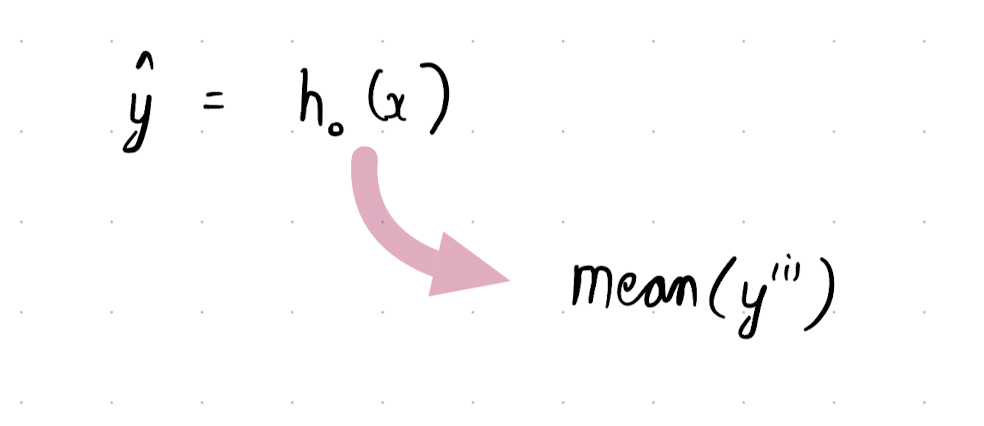 ŷ = h₀(x)
mean(y⁽ⁱ⁾)